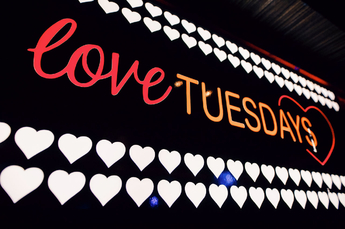 love TUESDAYS